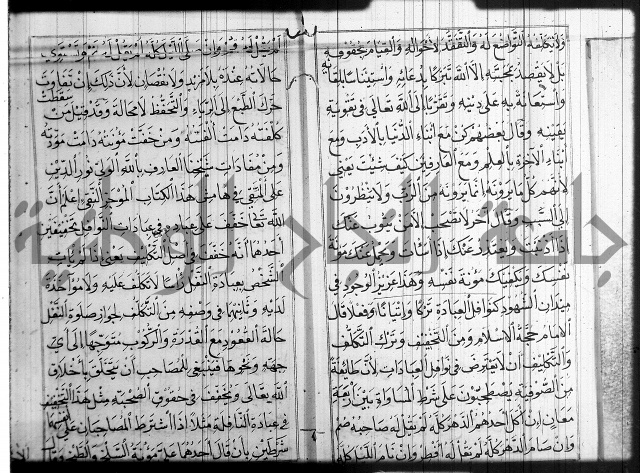 ولا تكلفه التواضع له والتفقد لاحواله والقيام بحقوقه
بل لا يقصد بمحبته الا الله تبركا بدعائه واستيناسا بلقائه
واستعانة به على دينه وتقربا الى الله تعالى في تقوية
يقينه وقال بعضهم كن مع ابناء الدنيا بالادب ومع
ابناء الاخرة بالعلم ومع العارفين كيف شئت يعني
لانهم كل ما يرونه انما يرونه من الرب ولا ينظرون
الى السبب وقال اخر لا تصحب الا من يتوب عنك
اذا اذنبت ويعتذر عنك اذا اسأت ويحمل عنك مؤنة
نفسك ويكفيك مؤنة نفسه وهذا عزيز الوجود في
ميدان الشهود كنوافل العبادة تركا واتيانا وفعلا قال
الامام حجة الاسلام ومن التخفيف وترك التكلف
والتكليف ان لا يعترض في نوافل العبادات لان طائفة
من الصوفية يصطحبون على شرط المساواة بين اربعة
معان ان اكل احدهم الدهر كله لم يقل له صاحبه صم
وان صام الدهر كله لم يقل له افطر وان نام الليل كله
لم يقل له قم وان صلى الليل كله لم يقل له نم وتستوي
حالاته عنده بلا مزيد ولا نقصان لان ذلك ان تفاوت
حرك الطبع الى الرياء والتحفظ لا محالة وقد قيل من سقطت
كلفته دامت الفته ومن خفت مؤنته دامت مودته
ومن مفادات شيخنا العارف بالله الولي نور الدين
على المتقي في هامش هذا الكتاب الموجز النقي اعلم ان
الله تعا خفف على عباده في عبادات النوافل بتخفيفين
احدهما انه خفف في اصل التكليف يعني اذا لم يات
الشخص بعبادة النفل راسا لا تكلف عليه ولا مؤاخذة
لديه وثانيهما في وصفه من التكلف لجواز صلوة النفل
حالة القعود مع القدرة والركوب متوجها الى اي
جهة ونحوها فينبغي للمصاحب ان يتخلق باخلاق
الله تعالى ويخفف في حقوق الصحبة مثل هذا التخفيف
في عبادة النافلة مثلا اذا اشترط المصاحبان على نفسهما
شرطين بان قال احدهما على مؤنة
جامعة النجاح الوطنية